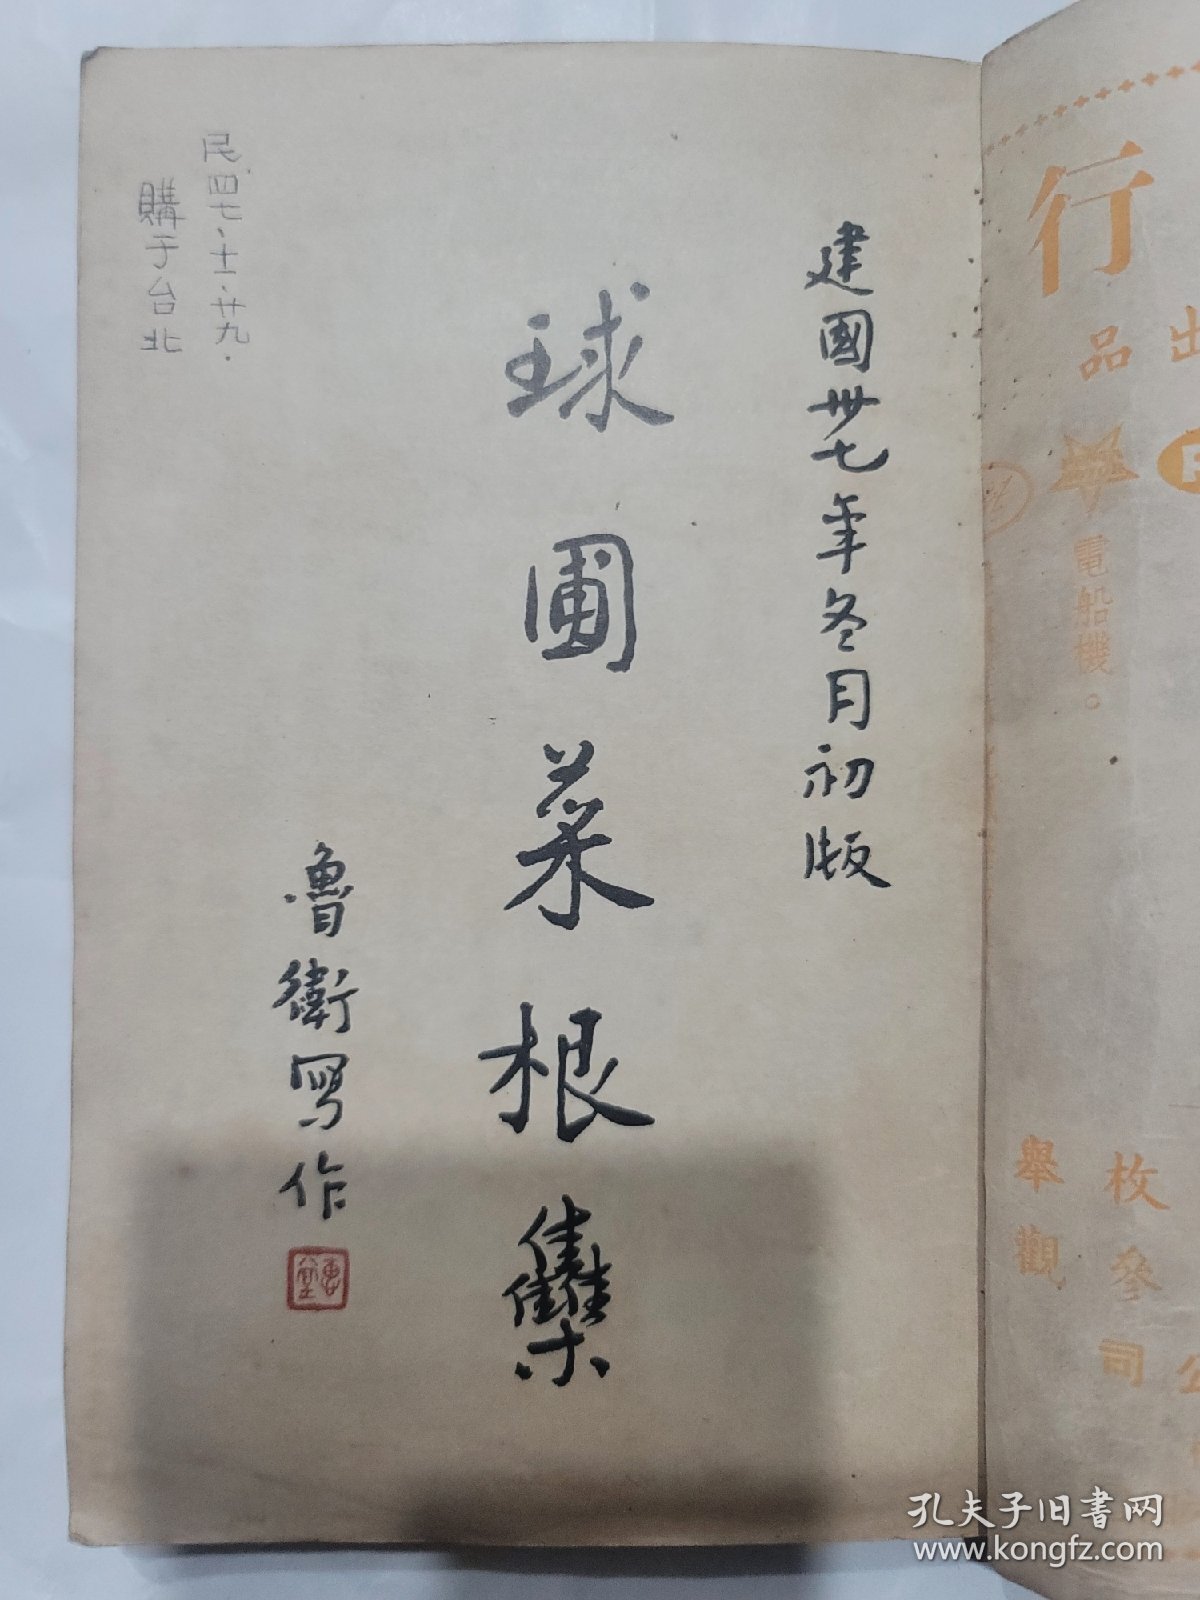 建國卅七年冬月初版
球圃菜根雧
魯衛寫作
民四七、十二、廿九.
購于台北
行
品
電船機。
枚參司
舉觀
孔夫子旧书网
www.kongfz.com